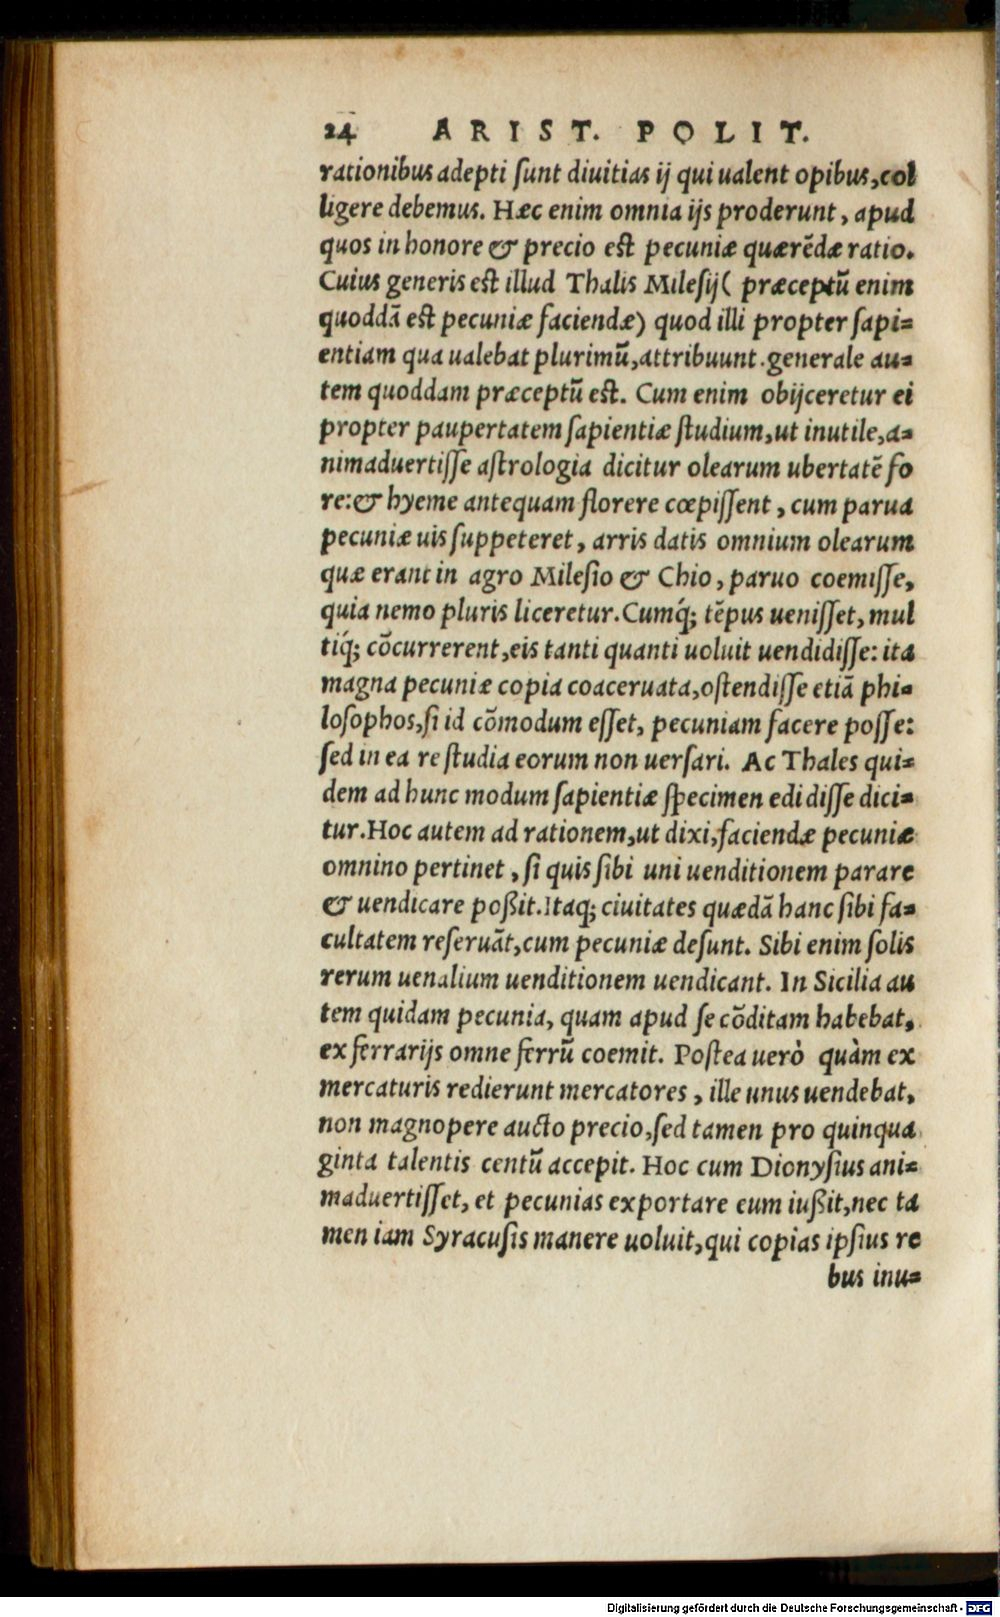 24 ARIST. POLIT.
rationibus adepti ſunt diuitias ij qui ualent opibus,col
ligere debemus. Hæc enim omnia ijs proderunt, apud
quos in honore & precio est pecuniæ quærẽdæ ratio.
Cuius generis est illud Thalis Mileſij( præceptũ enim
quoddã est pecuniæ faciendæ) quod illi propter ſapi=
entiam qua ualebat plurimũ,attribuunt.generale au=
tem quoddam præceptũ est. Cum enim obijceretur ei
propter paupertatem ſapientiæ ſtudium,ut inutile,a=
nimaduertiſſe aſtrologia dicitur olearum ubertatẽ fo
re:& hyeme antequam florere cœpiſſent, cum parua
pecuniæ uis ſuppeteret, arris datis omnium olearum
quæ erant in agro Mileſio & Chio, paruo coemiſſe,
quia nemo pluris liceretur.Cumq́; tẽpus ueniſſet, mul
tiq́; cõcurrerent,eis tanti quanti uoluit uendidiſſe: ita
magna pecuniæ copia coaceruata,oſtendiſſe etiã phi=
loſophos,ſi id cõmodum eſſet, pecuniam facere poſſe:
ſed in ea re ſtudia eorum non uerſari. Ac Thales qui=
dem ad hunc modum ſapientiæ ſpecimen edidiſſe dici=
tur.Hoc autem ad rationem,ut dixi,faciendæ pecuniæ
omnino pertinet, ſi quis ſibi uni uenditionem parare
& uendicare poßit.Itaq; ciuitates quædã hanc ſibi fa=
cultatem reſeruãt,cum pecuniæ deſunt. Sibi enim ſolis
rerum uenalium uenditionem uendicant. In Sicilia au
tem quidam pecunia, quam apud ſe cõditam habebat,
ex ferrarijs omne ferrũ coemit. Poſtea uerò quàm ex
mercaturis redierunt mercatores, ille unus uendebat,
non magnopere aucto precio,ſed tamen pro quinqua
ginta talentis centũ accepit. Hoc cum Dionyſius ani=
maduertiſſet, et pecunias exportare eum iußit,nec ta
men iam Syracuſis manere uoluit,qui copias ipſius re
bus inu=
Digitalisierung gefördert durch die Deutsche Forschungsgemeinschaft - DFG